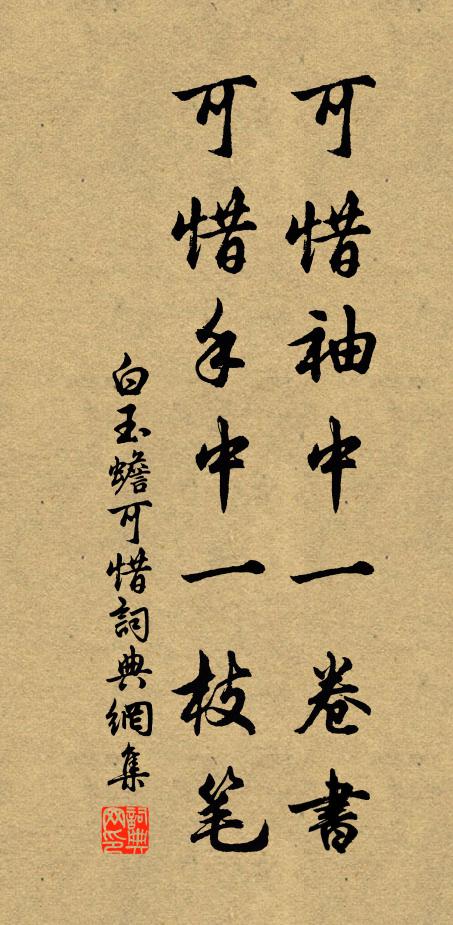 可惜袖中一卷書
可惜手中一枝笔
白玉蟾可惜詞典網集
詞典网印